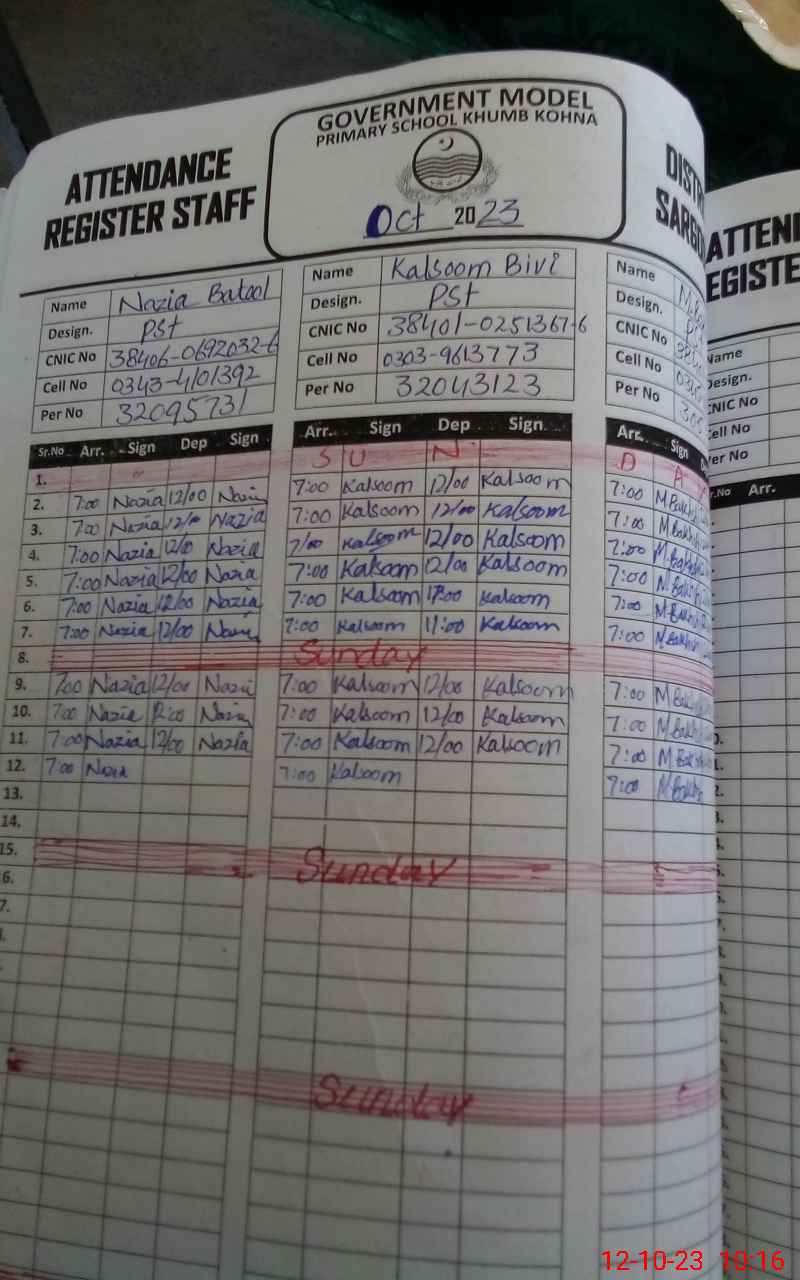 ATTENDANCE
REGISTER STAFF
GOVERNMENT MODEL
PRIMARY SCHOOL KHUMB KOHNA
Oct 2023
Name Nazia Batool
Design. PSt
CNIC No 38406-0692032-6
Cell No 0343-4101392
Per No 32095731
Name Kalsoom Bivi
Design. PSt
CNIC No 38401-0251367-6
Cell No 0303-9613773
Per No 32043123
Name
Design.
CNIC No
Cell No
Per No
Sr.No Arr. Sign Dep Sign Arr. Sign Dep Sign Arr. Sign
1. S U N D A
2. 7:00 Nazia 12/00 Nazia 7:00 Kalsoom 12/00 Kalsoom 7:00 M.Bakhsh
3. 7:00 Nazia 12/00 Nazia 7:00 Kalsoom 12/00 Kalsoom 7:00 M.Bakhsh
4. 7:00 Nazia 12/00 Nazia 7/00 Kalsoom 12/00 Kalsoom 7:00 M.Bakhsh
5. 7:00 Nazia 12/00 Nazia 7:00 Kalsoom 12/00 Kalsoom 7:00 M.Bakhsh
6. 7:00 Nazia 12/00 Nazia 7:00 Kalsoom Kalsoom 7:00 M.Bakhsh
7. 7:00 Nazia 12/00 Nazia 7:00 Kalsoom 11:00 Kalsoom 7:00 M.Bakhsh
8. Sunday
9. 7:00 Nazia 12/00 Nazia 7:00 Kalsoom 12/00 Kalsoom 7:00 M.Bakhsh
10. 7:00 Nazia 12:00 Nazia 7:00 Kalsoom 12/00 Kalsoom 7:00 M.Bakhsh
11. 7:00 Nazia 12/00 Nazia 7:00 Kalsoom 12/00 Kalsoom 7:00 M.Bakhsh
12. 7:00 Nazia 7:00 Kalsoom 7:00 M.Bakhsh
13.
14.
15. Sunday
6.
7.
Sunday
ATTEN
REGISTE
Name
Design.
CNIC No
Cell No
Per No
Arr.
12-10-23 10:16